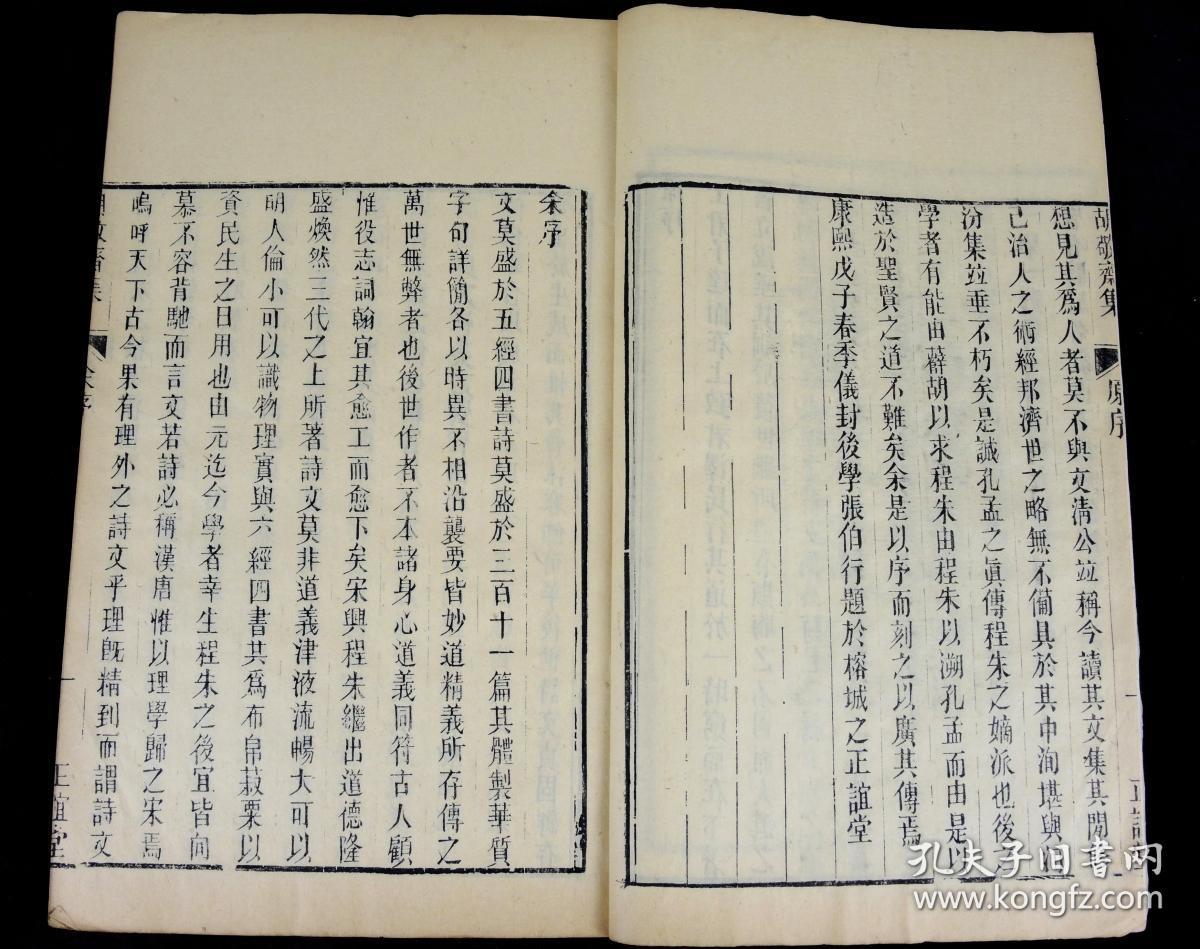 胡敬齋集 原序 一 正誼堂
想見其爲人者莫不與文淸公竝稱今讀其文集其閒書
已治人之術經邦濟世之略無不僃具於其中洵堪與
汾集竝垂不朽矣是誠孔孟之眞傳程朱之嫡派也後
學者有能由薛胡以求程朱由程朱以溯孔孟而由是以
造於聖賢之道不難矣余是以序而刻之以廣其傳焉
康熙戊子春季儀封後學張伯行題於榕城之正誼堂
余序
文莫盛於五經四書詩莫盛於三百十一篇其體製華質
字句詳簡各以時異不相沿襲要皆妙道精義所存傳之
萬世無弊者也後世作者不本諸身心道義同符古人顧
惟役志詞翰宜其愈工而愈下矣宋興程朱繼出道德隆
盛煥然三代之上所著詩文莫非道義津液流暢大可以
明人倫小可以識物理實與六經四書其爲布帛菽粟以
資民生之日用也由元迄今學者幸生程朱之後宜皆向
慕不容背馳而言文若詩必稱漢唐惟以理學歸之宋焉
嗚呼天下古今果有理外之詩文乎理旣精到而謂詩文
胡敬齋集 余序 一 正誼堂
孔夫子旧书网
www.kongfz.com